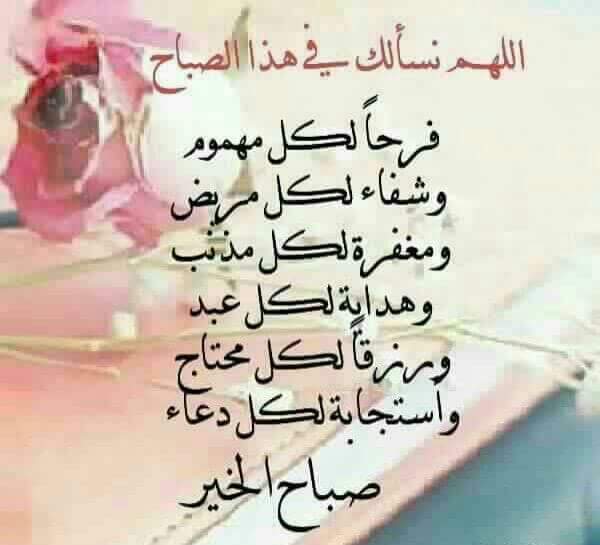 اللهم نسألك في هذا الصباح
فرحاً لكل مهموم
وشفاء لكل مريض
ومغفرة لكل مذنب
وهداية لكل عبد
ورزقاً لكل محتاج
وأستجابة لكل دعاء
صباح الخير